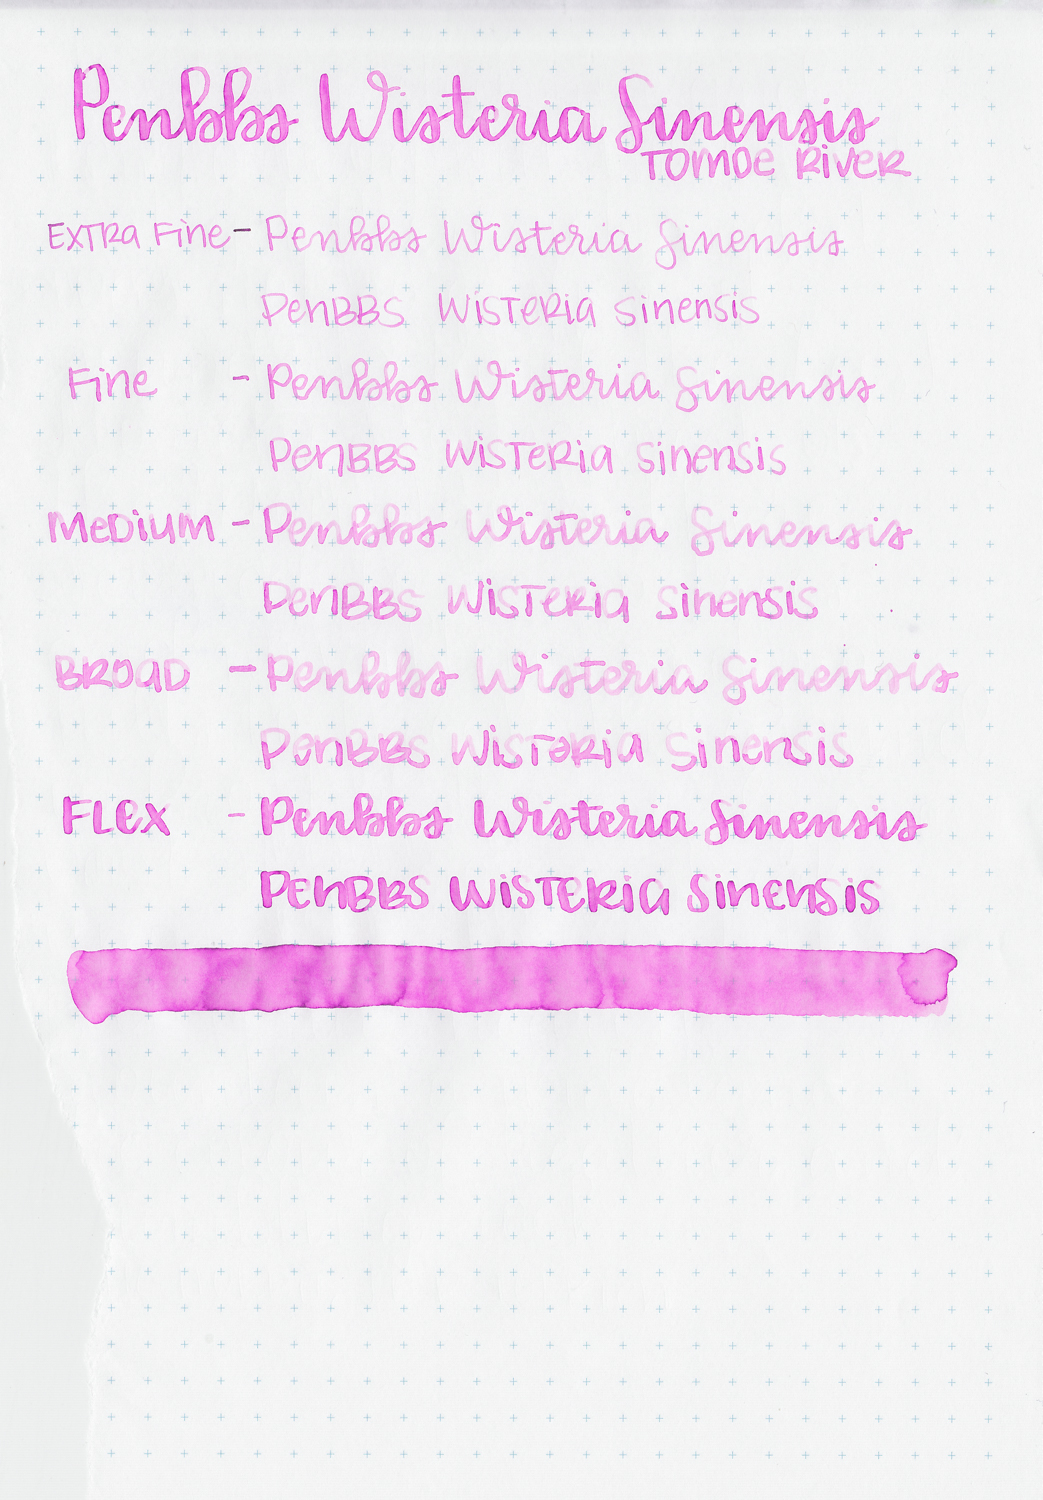 Penbbs Wisteria Sinensis
TOMOE RIVER
EXTRA Fine - Penbbs Wisteria Sinensis
PenBBS WISTERIA Sinensis
Fine - Penbbs Wisteria Sinensis
PenBBS WISTERIA Sinensis
MEDIUM - Penbbs Wisteria Sinensis
PenBBS WISTERIA Sinensis
BROAD - Penbbs Wisteria Sinensis
PenBBS WISTERIA Sinensis
FLEX - Penbbs Wisteria Sinensis
PENBBS WISTERIA SINENSIS